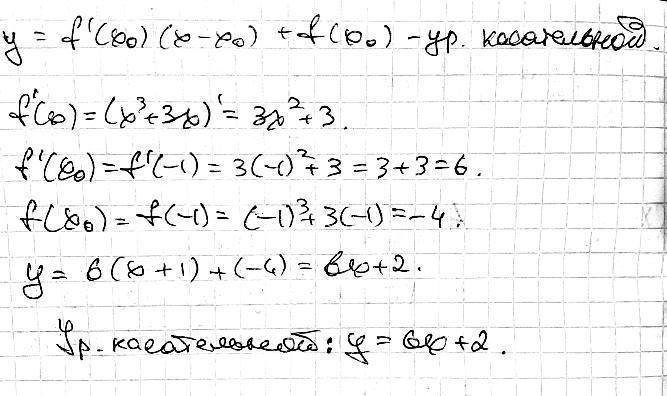 y = f'(x₀)(x-x₀) + f(x₀) - ур. касательной.
f'(x) = (x³+3x)' = 3x²+3.
f'(x₀) = f'(-1) = 3(-1)²+3 = 3+3=6.
f(x₀) = f(-1) = (-1)³+3(-1) = -4.
y = 6(x+1)+(-4) = 6x+2.
Ур. касательной: y = 6x+2.